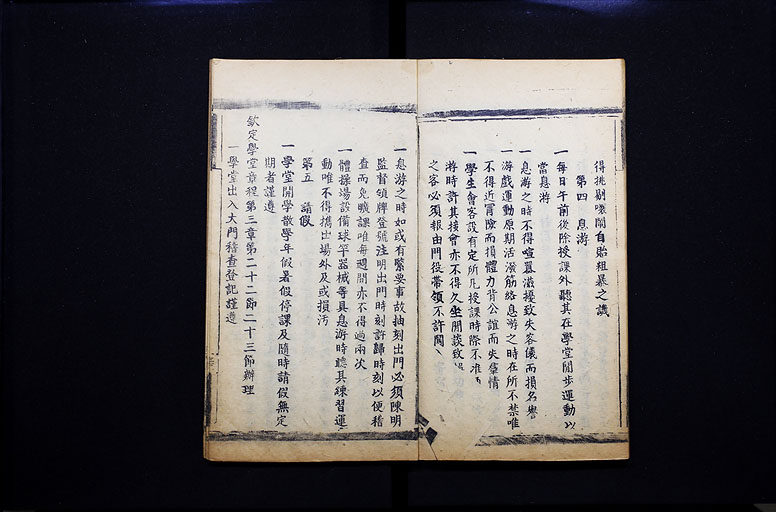 得挑剔嚷鬧自貽粗暴之譏
第四　息游
一每日午前後除授課外聽其在學堂閒步運動以
當息游
一息游之時不得喧囂滋擾致失容儀而損名譽
一游戲運動原期活潑筋絡息游之時在所不禁唯
不得近冒險而損體力背公誼而失羣情
一學生會客設有定所凡授課時際不准
游時許其接會亦不得久坐閒談致
之客必須報由門役帶領不許闖
一息游之時如或有緊要事故抽刻出門必須陳明
監督領牌登號注明出門時刻許歸時刻以便稽
查而免曠課唯每週間亦不得過兩次
一體操場設備球竿器械等具息游時聽其練習運
動唯不得携出場外及或損污
第五　請假
一學堂開學散學年假暑假停課及隨時請假無定
期者謹遵
欽定學堂章程第三章第二十二節二十三節辦理
一學堂出入大門稽查登記謹遵